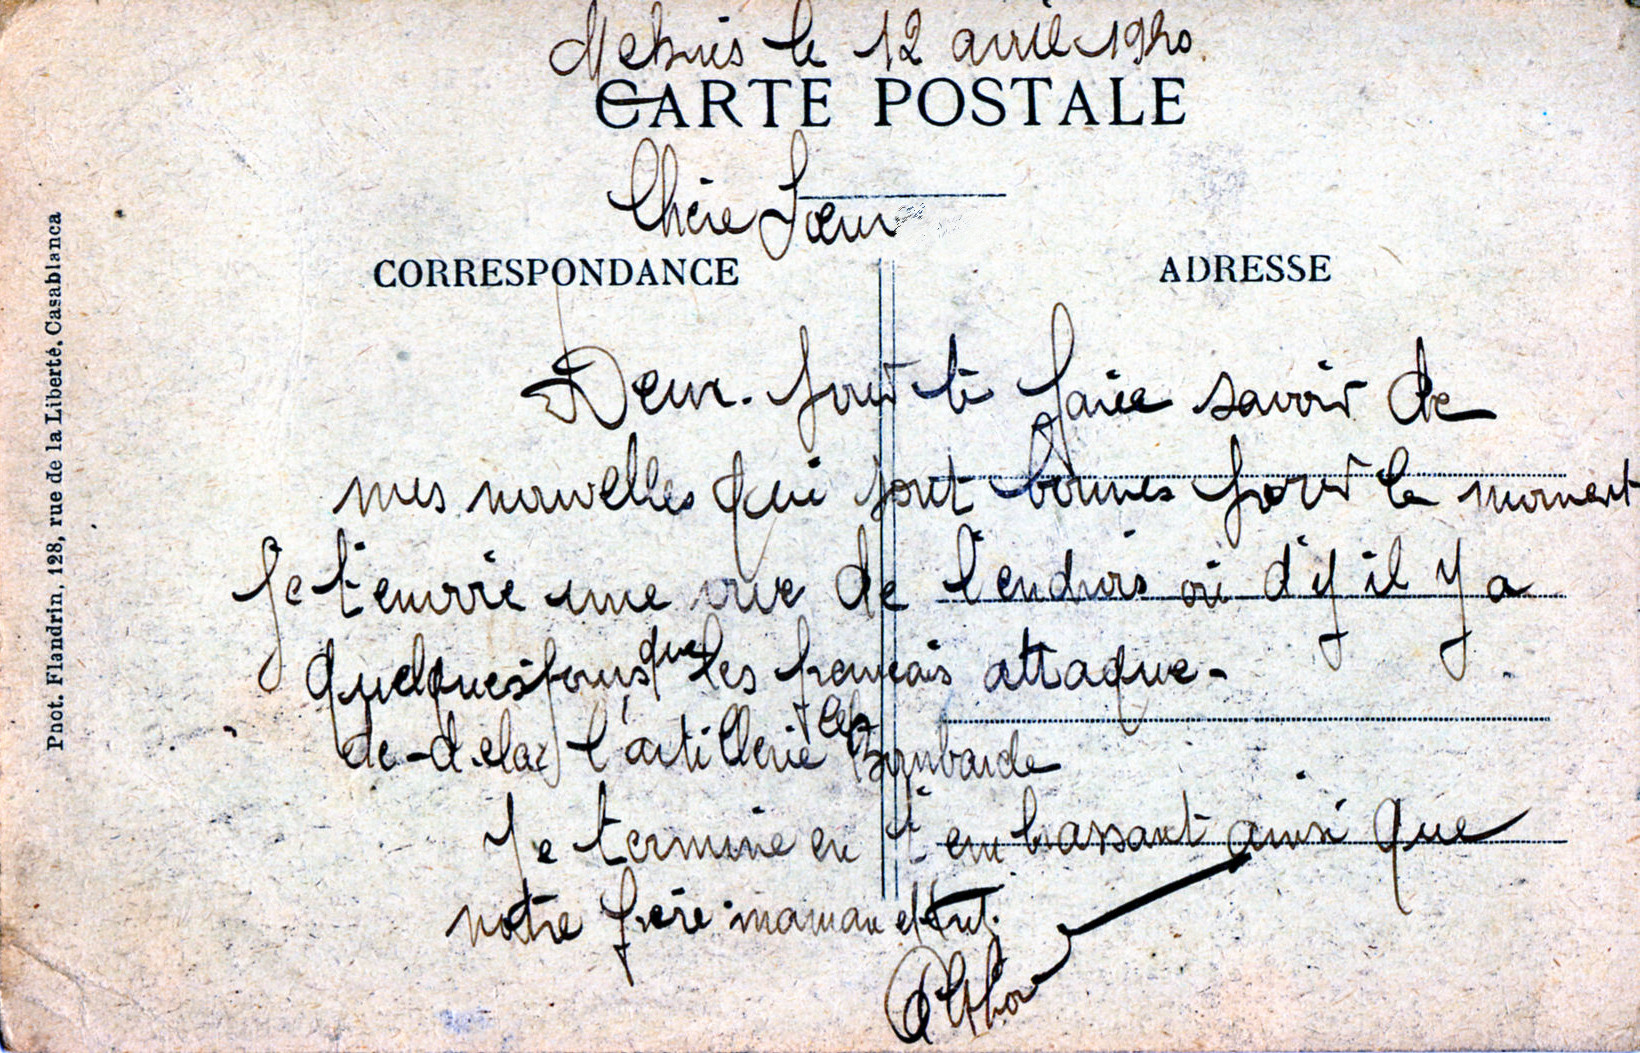 Meknès le 12 avril 1920
CARTE POSTALE
Chère Sœur
CORRESPONDANCE
ADRESSE
Deux. pour te faire savoir de
mes nouvelles qui sont bonnes pour le moment
Je t'envoie une vue de l'endrois où d'y il y a
quelquesfous que les français attaque-
de-dela l'artillerie les Bombarde
Je termine en t'embrassant ainsi que
notre frère maman et
Phot. Flandrin, 128, rue de la Liberté. Casablanca